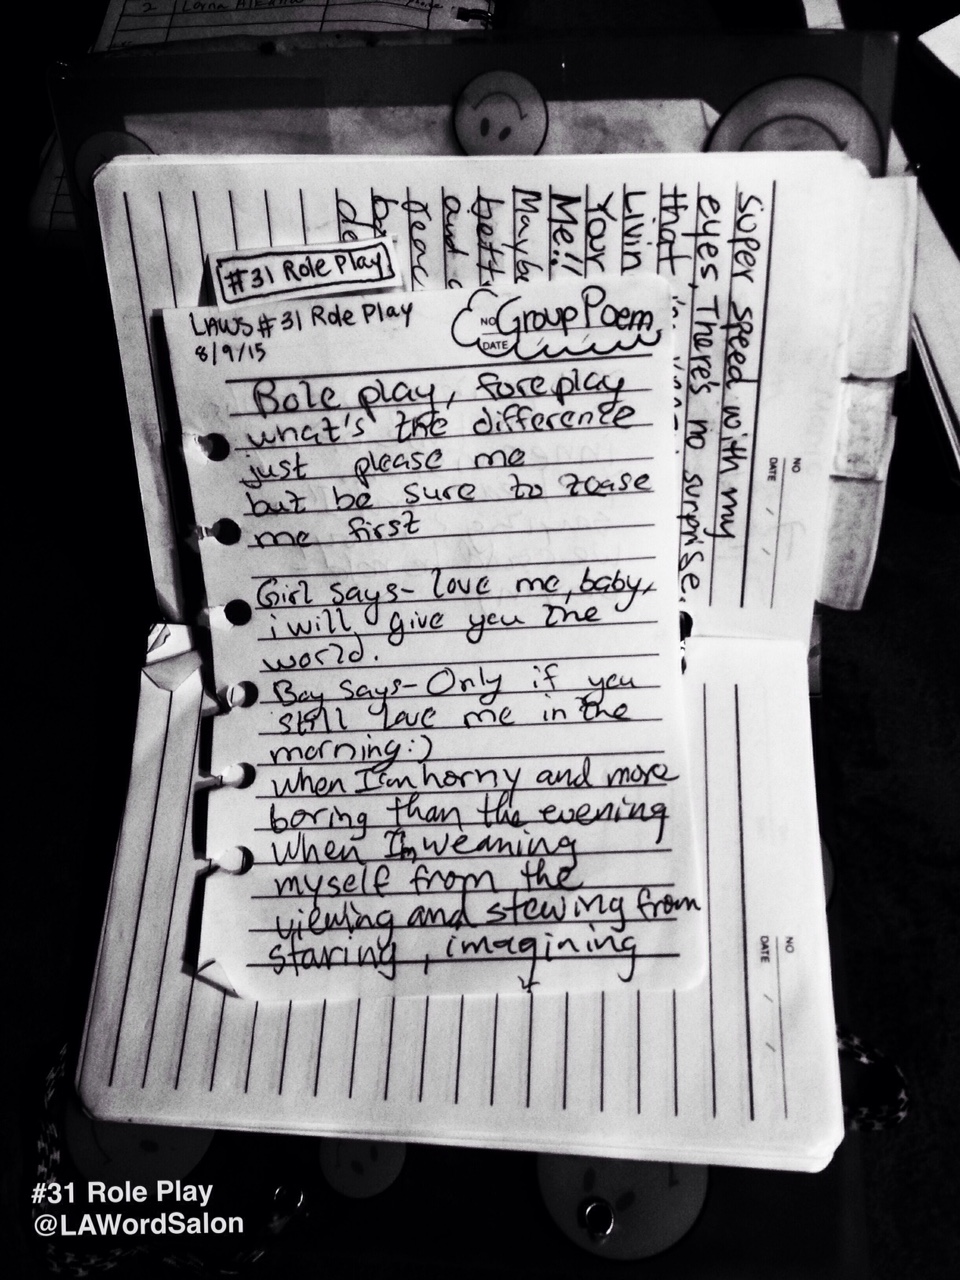 2 Lorna
#31 Role Play
LAWS #31 Role Play
8/9/15
NO
DATE
Group Poem
Role play, foreplay
what's the difference
just please me
but be sure to tease
me first
Girl says- love me, baby,
i will give you the
world.
Boy says- Only if you
still love me in the
morning:)
when I'm horny and more
boring than the evening
When I'm weaning
myself from the
viewing and stewing from
staring, imagining
Super speed with my
eyes, There's no surprise.
that
Livin
Your
Me!!
Maybe
bett
and
NO
DATE / /
NO
DATE / /
#31 Role Play
@LAWordSalon